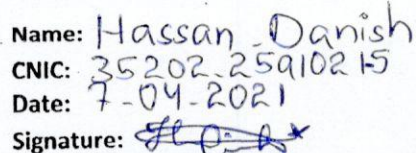 Name: Hassan Danish
CNIC: 35202-2591021-5
Date: 7-04-2021
Signature: